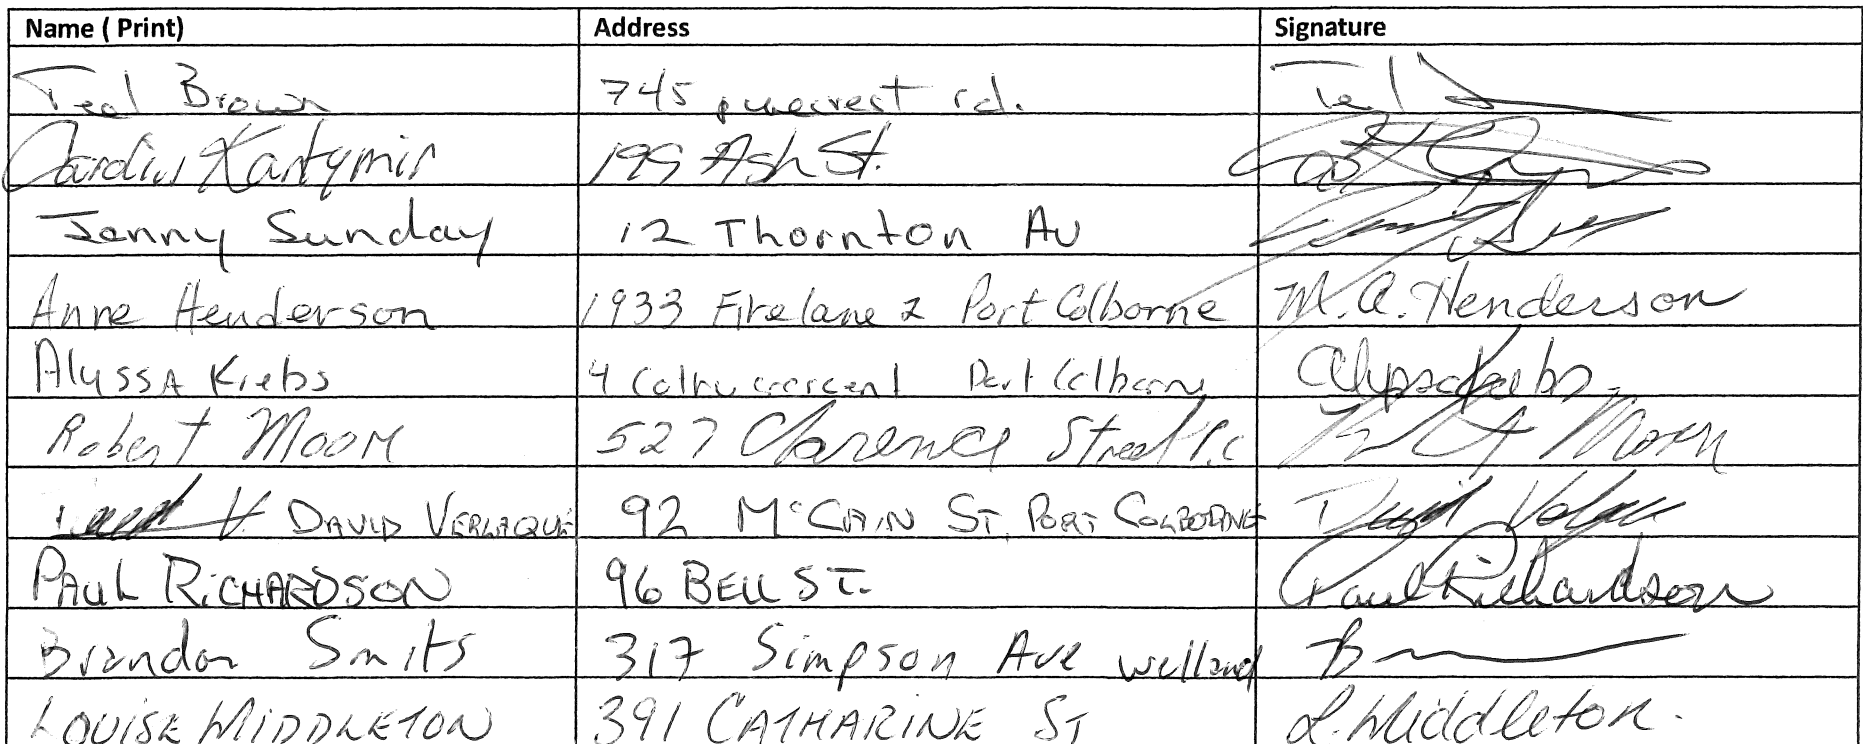 Name ( Print) Address Signature
Ted Brown 745 pinecrest rd. Ted
Kartymir 195 Ash St.
Jenny Sunday 12 Thornton Av
Anne Henderson 1933 Firelane 2 Port Colborne M. A. Henderson
Alyssa Krebs 4 crescent Port Colborne Alyssa Krebs
Robert Moorn 527 Clarence Street P.c
V. DAVID VERLAQUE 92 McCAIN ST. PORT COLBORNE David
PAUL RICHARDSON 96 BELL ST. Paul Richardson
Brandon Smits 317 Simpson Ave welland
LOUISE MIDDLETON 391 CATHARINE ST L. Middleton.